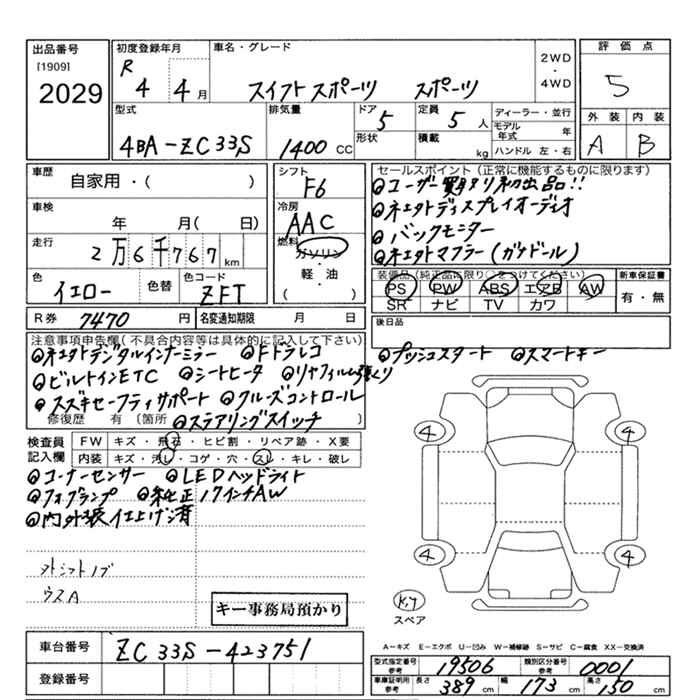 出品番号 初度登録年月 車名・グレード 2WD ・ 4WD 評価点
[1909] R
2029 4 4月 スイフトスポーツ スポーツ 5
型式 排気量 ドア 定員 ディーラー・並行 外装 内装
4BA-ZC33S 1400 CC 5 5人 モデル年式 年 A B
形状 積載 kg ハンドル 左・右
車歴 自家用・( ) シフト F6
車検 年 月( 日) 冷房 AAC
走行 2万6千767km 燃料 ガソリン・軽・油 ( )
色 イエロー 色替 色コード ZFT
R券 7470円 名変通知期限 月 日
セールスポイント(正常に機能するものに限ります)
◎ユーザー買取り初出品!!
◎ネエクトディスプレイオーディオ
◎バックモニター
◎ネエクトマフラー(ガナドール)
装備品(純正品に限り○をつけてください) 新車保証書
PS PW ABS エアB AW 有・無
SR ナビ TV カワ
後日品
注意事項申告欄(不具合内容等は具体的に記入して下さい)
◎ネエクトデジタルインナーミラー ◎Fドラレコ ◎プッシュスタート ◎スマートキー
◎ビルトインETC ◎シートヒータ ◎リヤフィルム張り
◎スズキセーフティサポート ◎クルーズコントロール
修復歴 有 〔箇所 ◎ステアリングスイッチ 〕
検査員記入欄 FW キズ・飛石・ヒビ割・リペア跡・X要
内装 キズ・汚レ・コゲ・穴・スレ・キレ・破レ
◎コーナーセンサー ◎LEDヘッドライト
◎フォグランプ ◎純正17インチAW
◎内外装仕上げ済
外シフトノブ
ウスA
キー事務局預かり
4 4
4 4
スペア
車台番号 ZC33S-423751
登録番号
A-キズ E-エクボ U-凹み W-補修跡 S-サビ C-腐食 XX-交換済
型式指定番号 参考 19506 類別区分番号 参考 0001
車庫証明用 参考 長さ 389cm 幅 173cm 高さ 150cm